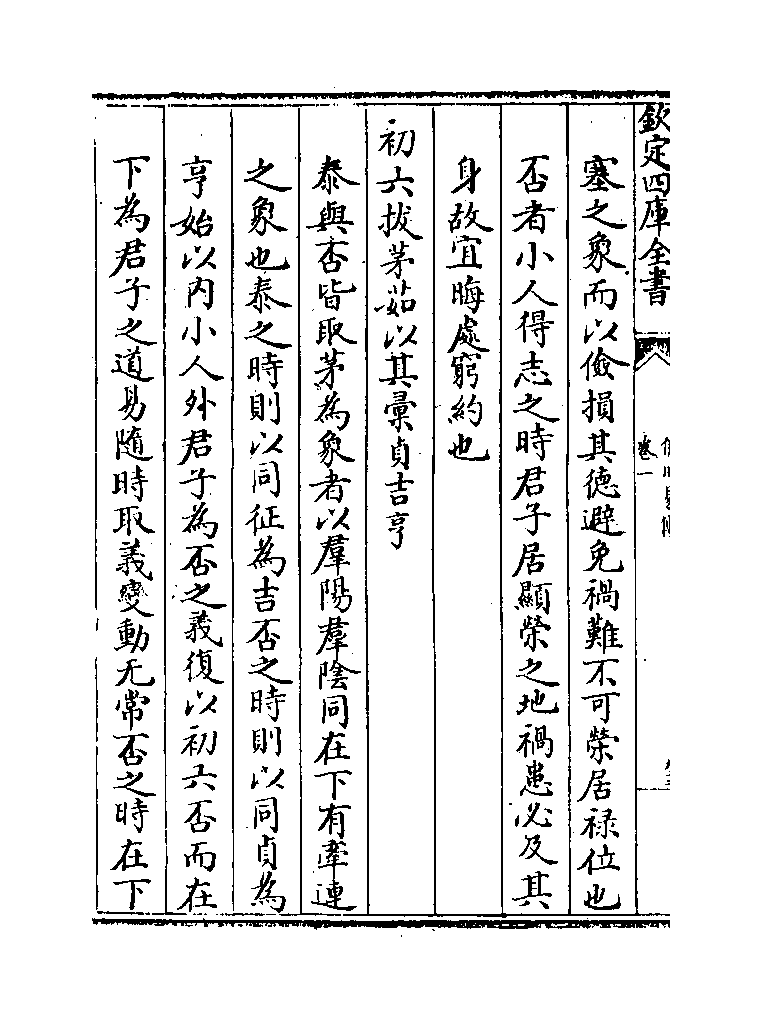 欽定四庫全書
卷一
塞之象而以儉損其德避免禍難不可榮居祿位也
否者小人得志之時君子居顯榮之地禍患必及其
身故宜晦處窮約也
初六拔茅茹以其彙貞吉亨
泰與否皆取茅為象者以羣陽羣陰同在下有牽連
之象也泰之時則以同征為吉否之時則以同貞為
亨始以內小人外君子為否之義復以初六否而在
下為君子之道易隨時取義變動无常否之時在下